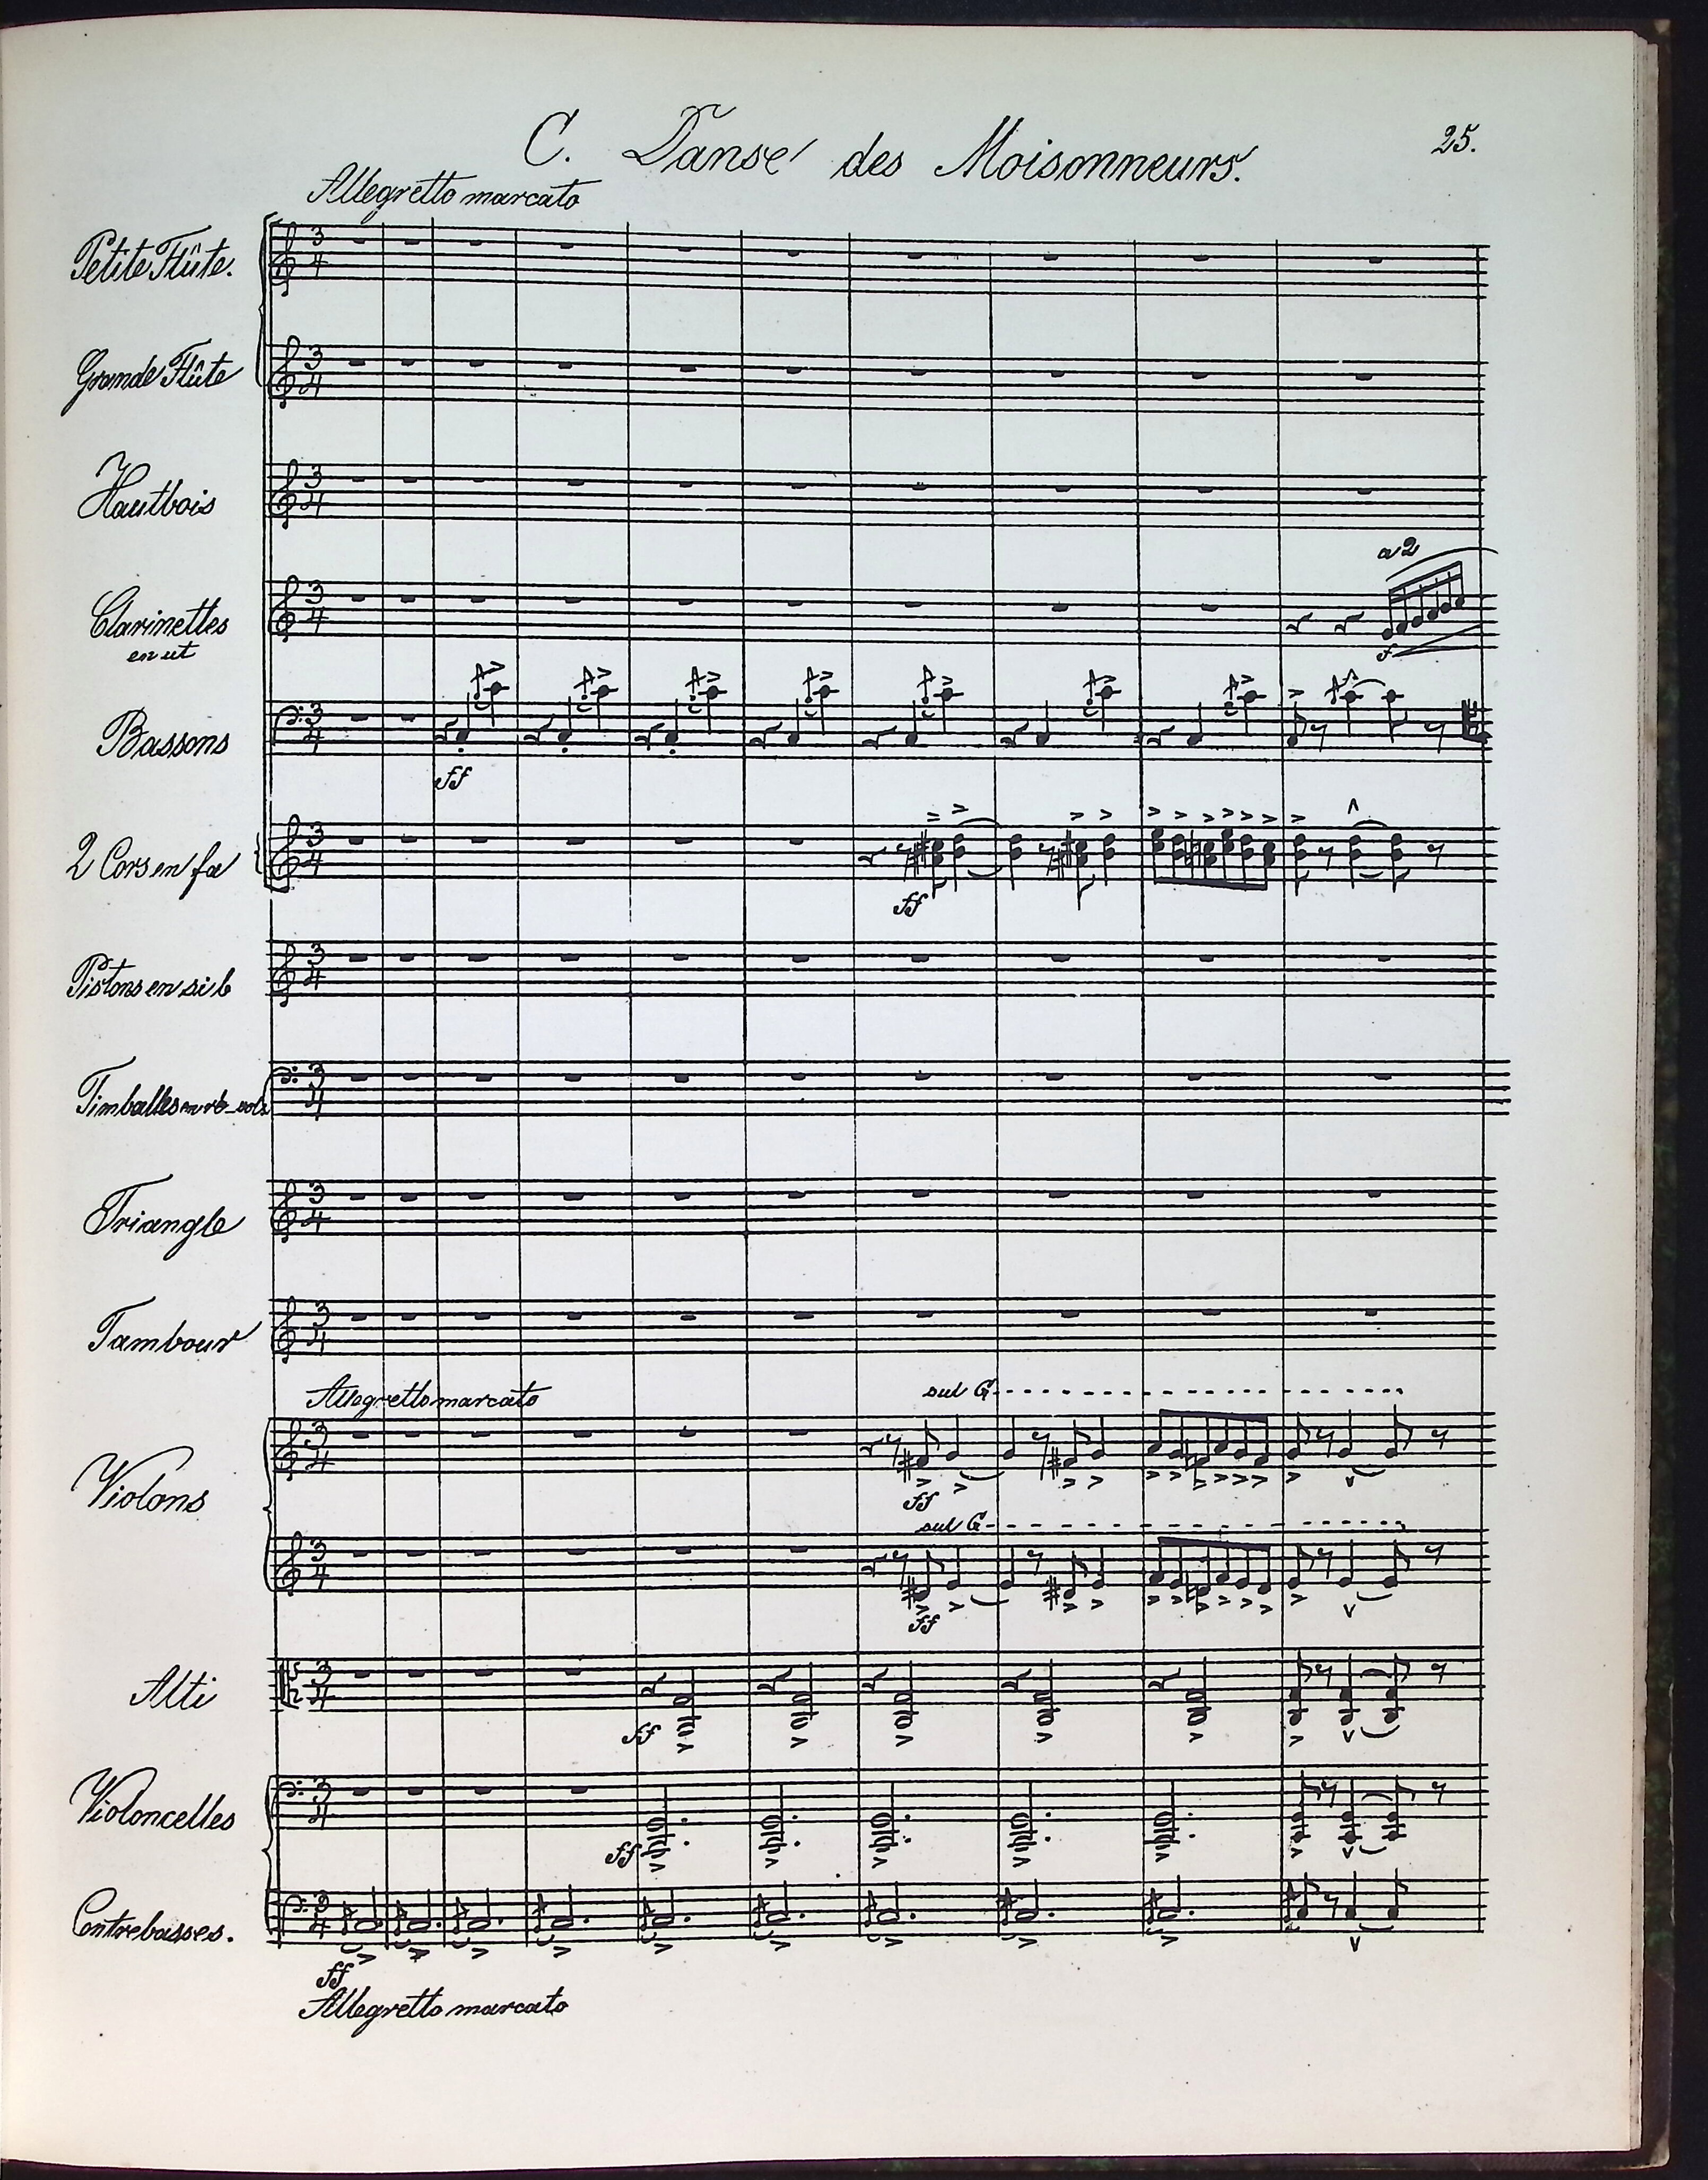 C. Danse des Moisonneurs.
25.
Allegretto marcato
Petite Flûte.
Grande Flûte
Hautbois
a 2
Clarinettes
en ut
f
Bassons
ff
2 Cors en fa
ff
Pistons en si b
Timballes en ré-sol
Triangle
Tambour
Allegretto marcato
sul G
Violons
ff
sul G
ff
Alti
ff
Violoncelles
ff
Contrebasses.
ff
Allegretto marcato